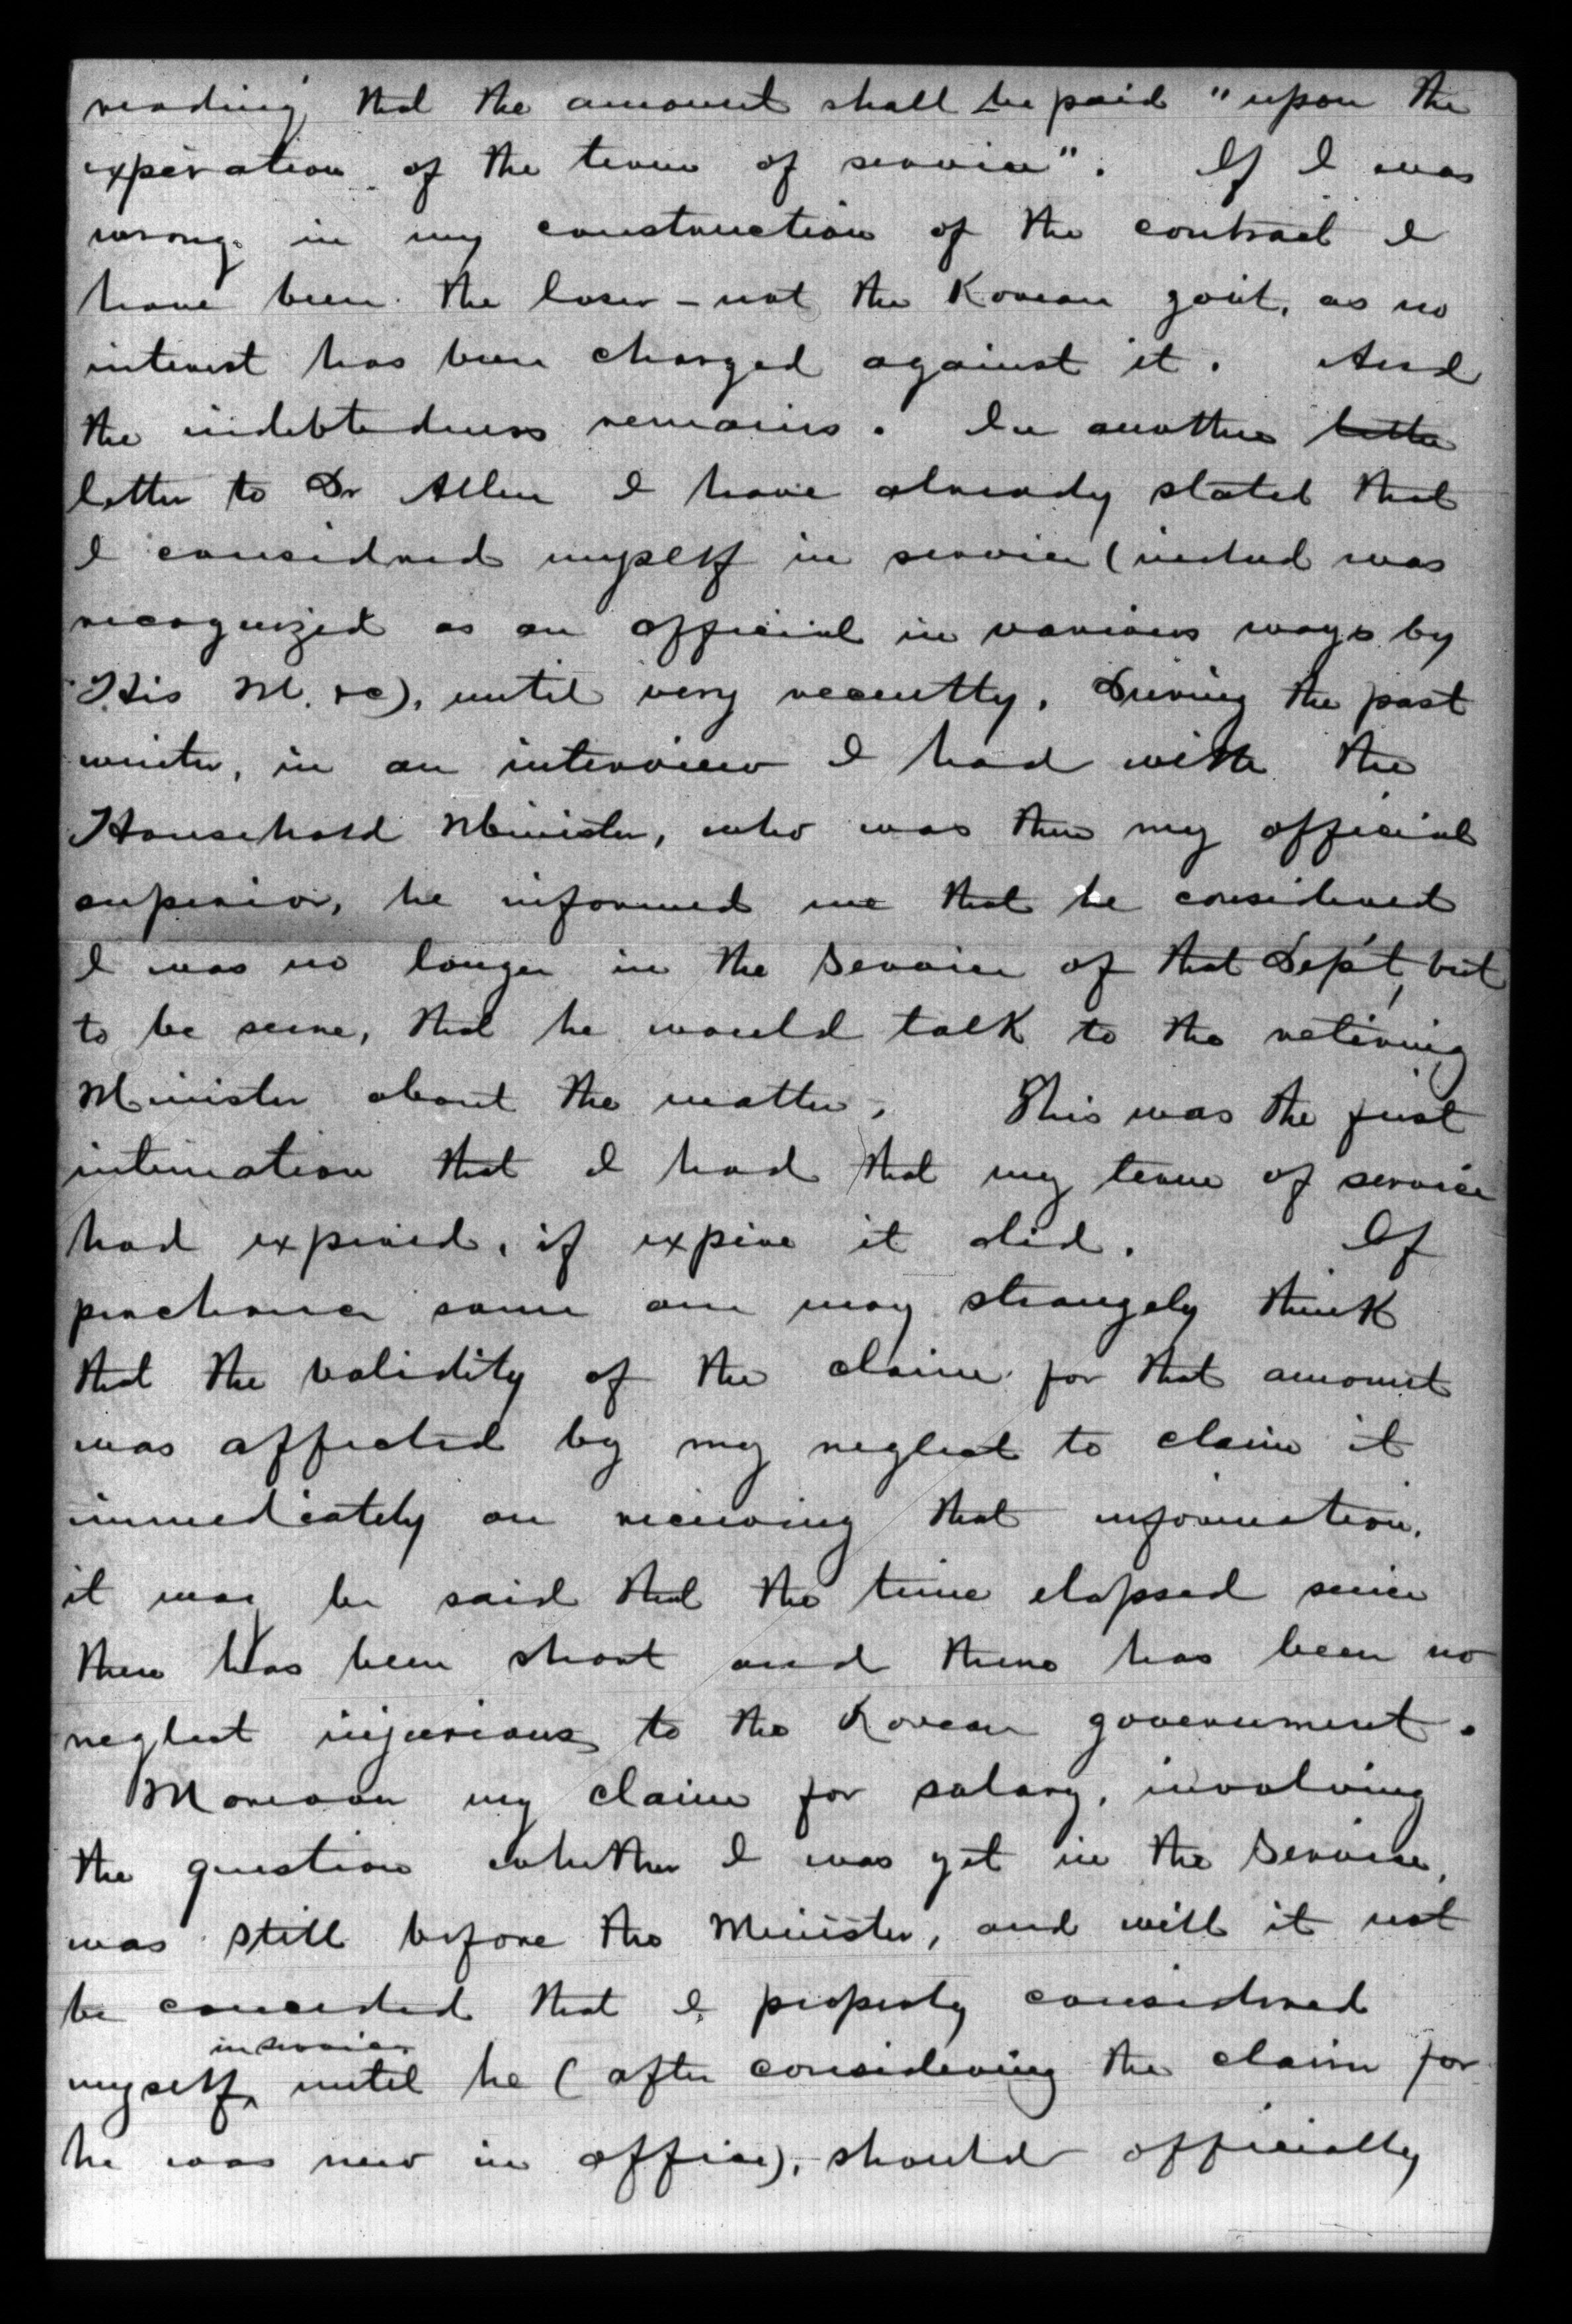 reading that the amount shall be paid "upon the
experation of the term of service". If I was
wrong in my construction of the contract I
have been the loser - not the Korean gov't, as no
interest has been charged against it. And
the indebtedness remains. In another letter
letter to Dr Allen I have already stated that
I considered myself in service (indeed was
recognized as an official in various ways by
His M. &c), until very recently. During the past
winter, in an interview I had with the
Household Minister, who was then my official
superior, he informed me that he considered
I was no longer in the service of that Dep't, but
to be sure, that he would talk to the retiring
Minister about the matter. This was the first
intimation that I had that my term of service
had expired, if expire it did. If
perchance some one may strangely think
that the validity of the claim for that amount
was affected by my neglect to claim it
immediately on receiving that information,
it may be said that the time elapsed since
then has been short and there has been no
neglect injurious to the Korean government.
Moreover my claim for salary, involving
the question whether I was yet in the service,
was still before the Minister, and will it not
be conceded that I properly considered
in service
myself, until he (after considering the claim for
he was new in office), should officially